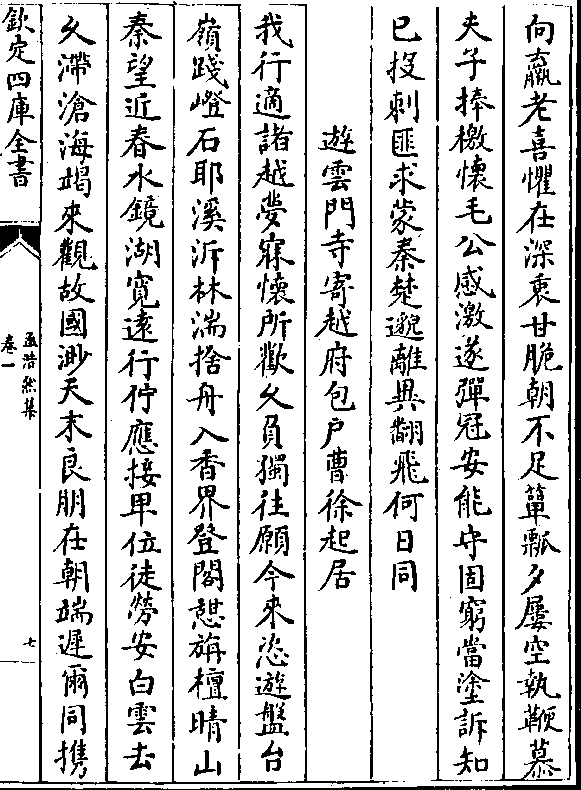 向羸老喜懼在深衷甘脆朝不足簞瓢夕屢空執鞭慕
夫子捧檄懷毛公感激遂彈冠安能守固窮當塗訴知
已投刺匪求蒙秦楚邈離異翻飛何日同
遊雲門寺寄越府包户曹徐起居
我行適諸越夢寐懷所歡乆負獨往願今來恣遊盤台
嶺踐磴石耶溪泝林湍捨舟入香界登閣憇旃檀晴山
秦望近春水鏡湖寛遠行佇應接甲位徒勞安白雲去
乆滯滄海竭來觀故國渺天末良朋在朝端遲爾同携
欽定四庫全書
孟浩然集
卷一
七